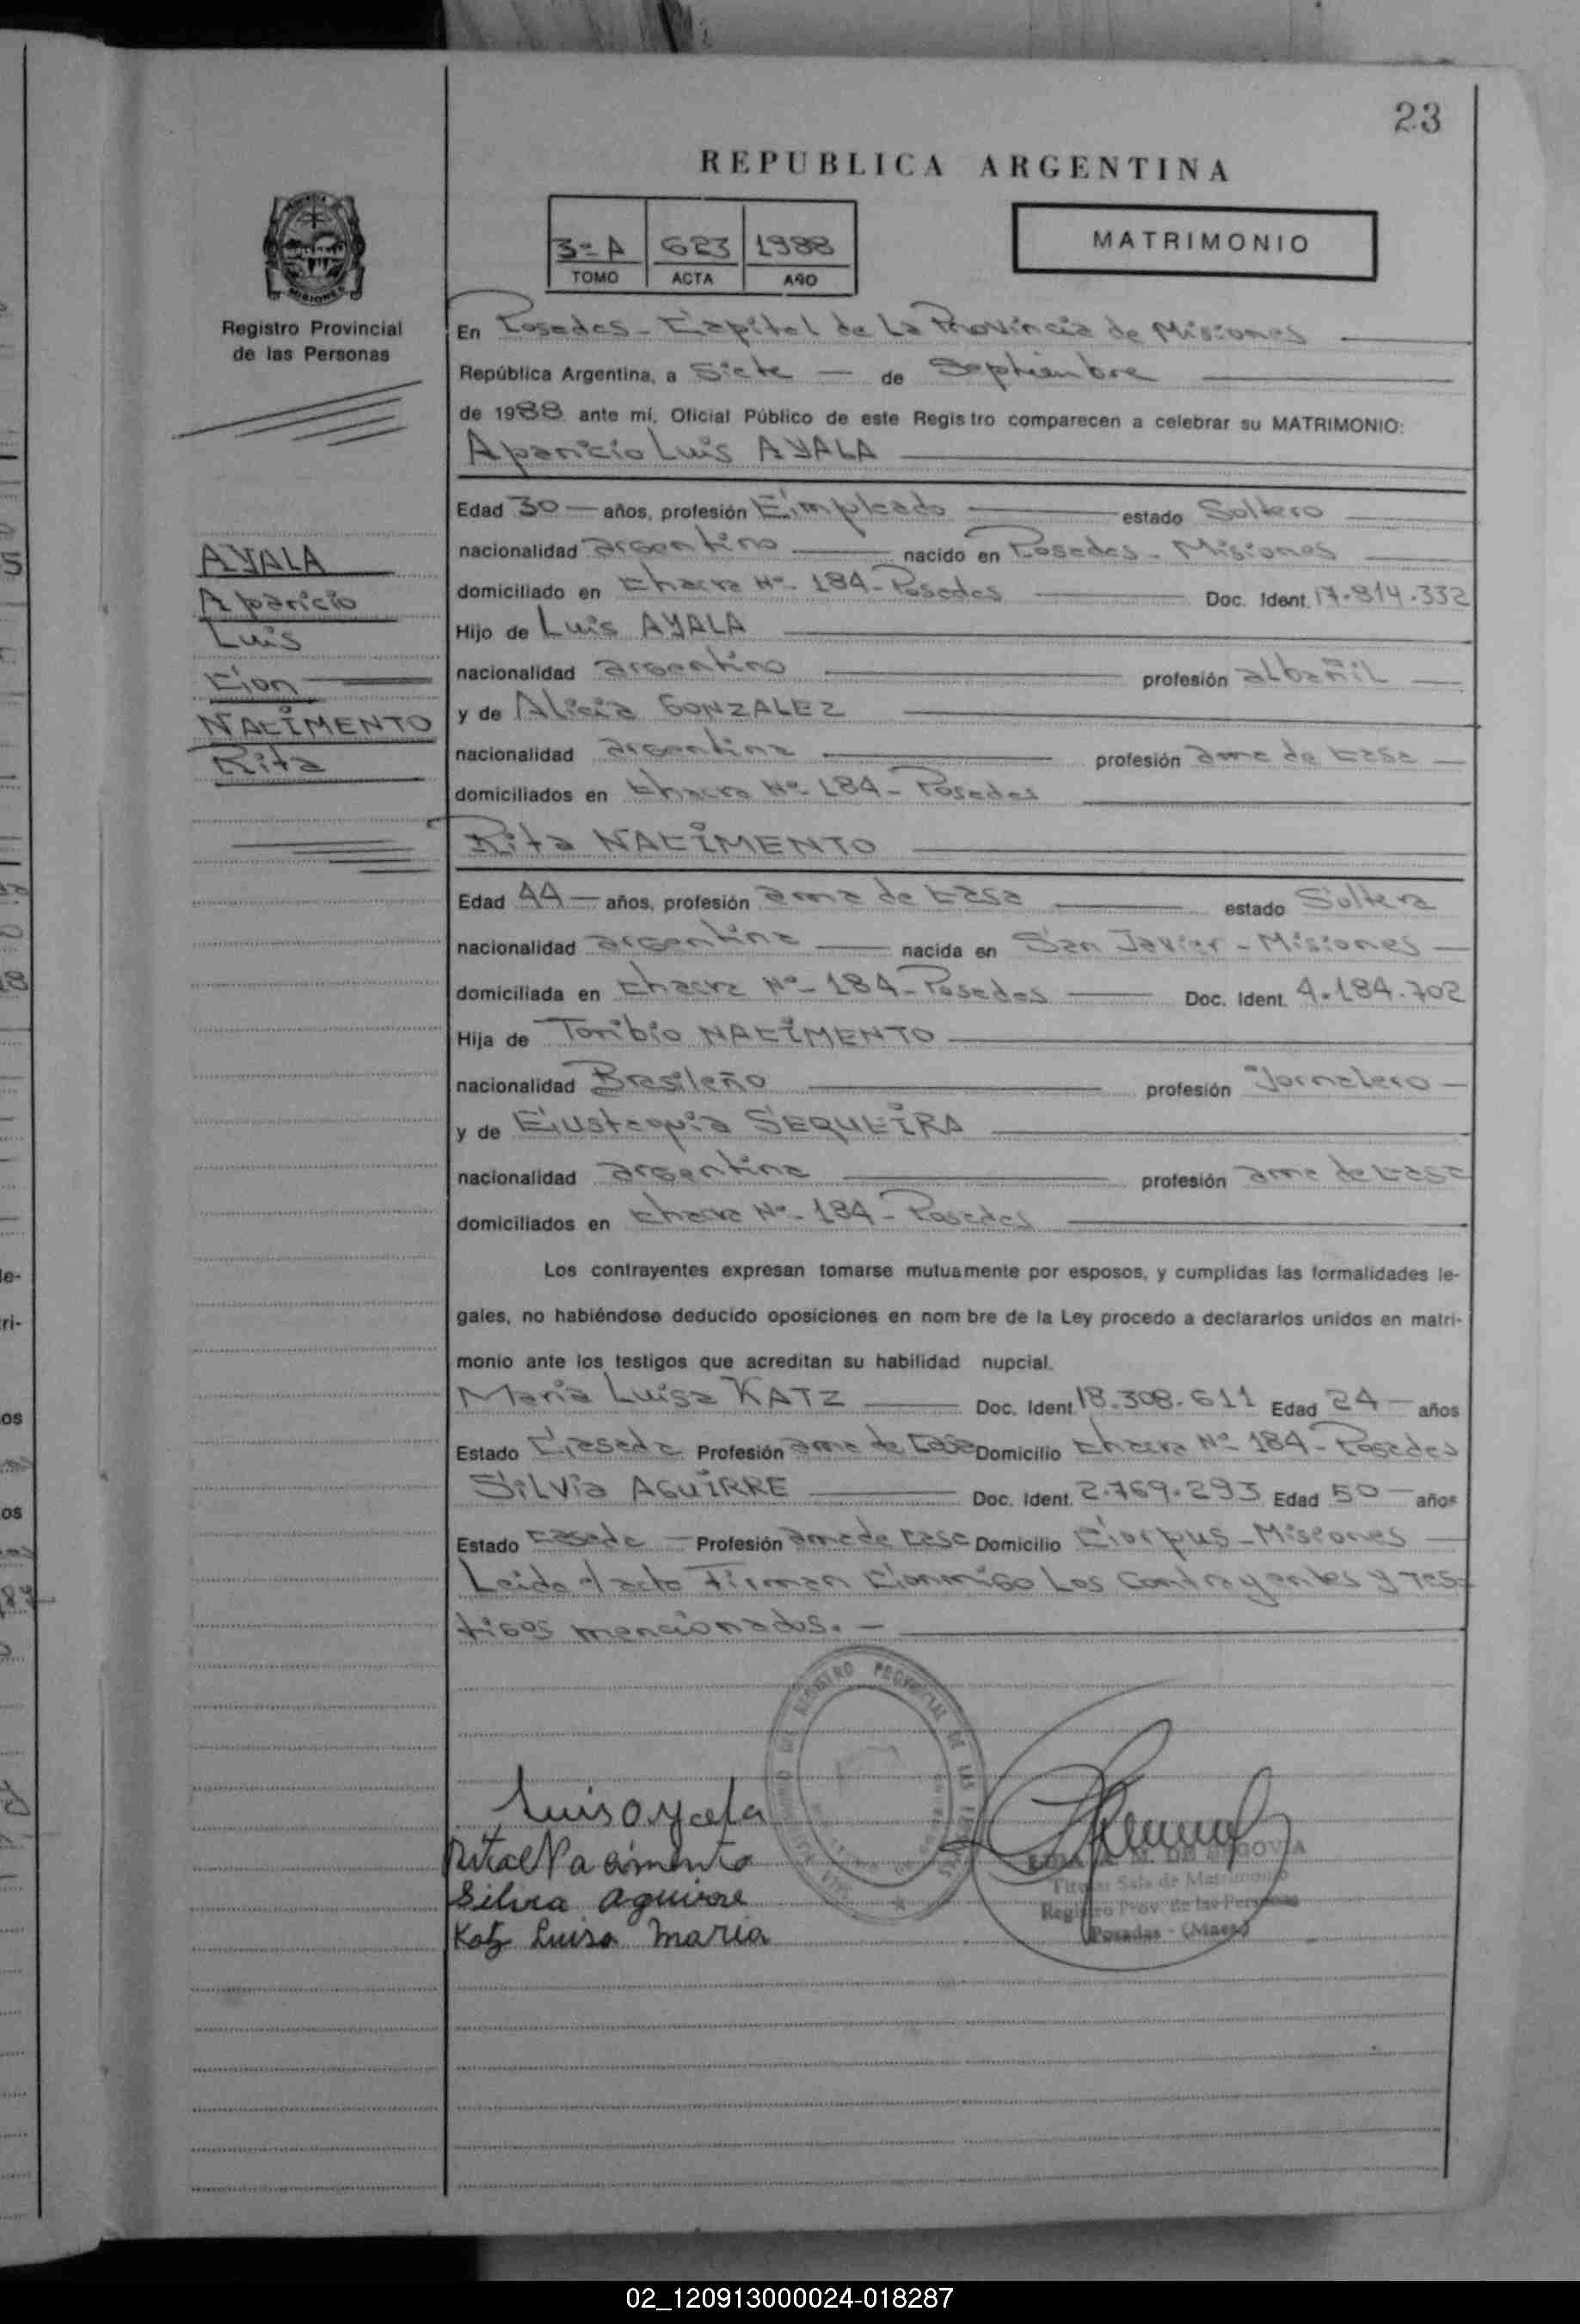 23
REPUBLICA ARGENTINA
3º A 623 1988
TOMO ACTA AÑO
MATRIMONIO
MISIONES
Registro Provincial
de las Personas
AYALA
Aparicio
Luis
Con
NACIMENTO
Rita
En Posadas - Capital de La Provincia de Misiones
República Argentina, a Siete de Septiembre
de 1988 ante mí, Oficial Público de este Registro comparecen a celebrar su MATRIMONIO:
Aparicio Luis AYALA
Edad 30 años, profesión Empleado estado Soltero
nacionalidad argentino nacido en Posadas - Misiones
domiciliado en Chacra Nº 184 - Posadas Doc. Ident. 17.814.332
Hijo de Luis AYALA
nacionalidad argentino profesión albañil
y de Alicia GONZALEZ
nacionalidad argentina profesión ama de casa
domiciliados en Chacra Nº 184 - Posadas
Rita NACIMENTO
Edad 44 años, profesión ama de casa estado Soltera
nacionalidad argentina nacida en San Javier - Misiones
domiciliada en Chacra Nº 184 - Posadas Doc. Ident. 4.184.702
Hija de Toribio NACIMENTO
nacionalidad Brasileño profesión Jornalero
y de Eustaquia SEQUEIRA
nacionalidad argentina profesión ama de casa
domiciliados en Chacra Nº 184 - Posadas
Los contrayentes expresan tomarse mutuamente por esposos, y cumplidas las formalidades le-
gales, no habiéndose deducido oposiciones en nombre de la Ley procedo a declararlos unidos en matri-
monio ante los testigos que acreditan su habilidad nupcial.
María Luisa KATZ Doc. Ident. 18.308.611 Edad 24 años
Estado Casada Profesión ama de casa Domicilio Chacra Nº 184 - Posadas
Silvia AGUIRRE Doc. Ident. 2.769.293 Edad 50 años
Estado casada Profesión ama de casa Domicilio Corpus - Misiones
Leída el acta Firman Conmigo Los Contrayentes y Tes-
tigos mencionados. -
REGISTRO PROVINCIAL DE LAS
Luis Ayala
Rita Nacimento
Silvia Aguirre
Katz Luisa Maria
M. DE SEGOVIA
Titular Sala de Matrimonio
Registro Prov. de las Personas
Posadas - (Mnes.)
02_120913000024-018287